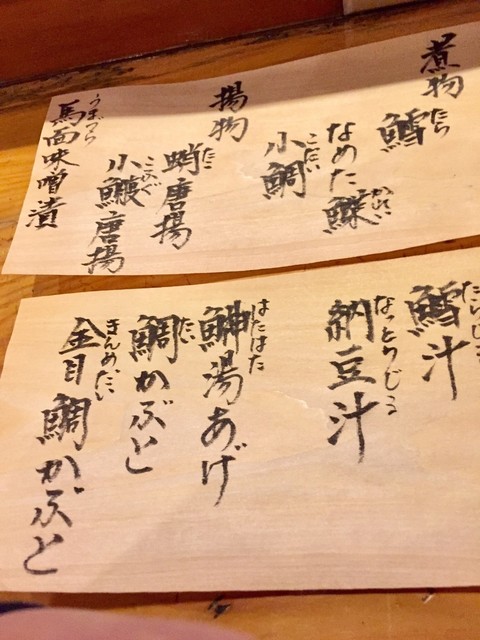 煮物
鱈
たら
なめた鰈
かれい
小鯛
こだい
揚物
蛸唐揚
たこ
小鰒唐揚
こふぐ
馬面味噌漬
うまづら
鱈汁
たらじる
納豆汁
なっとうじる
鰰湯あげ
はたはた
鯛かぶと
たい
金目鯛かぶと
きんめだい